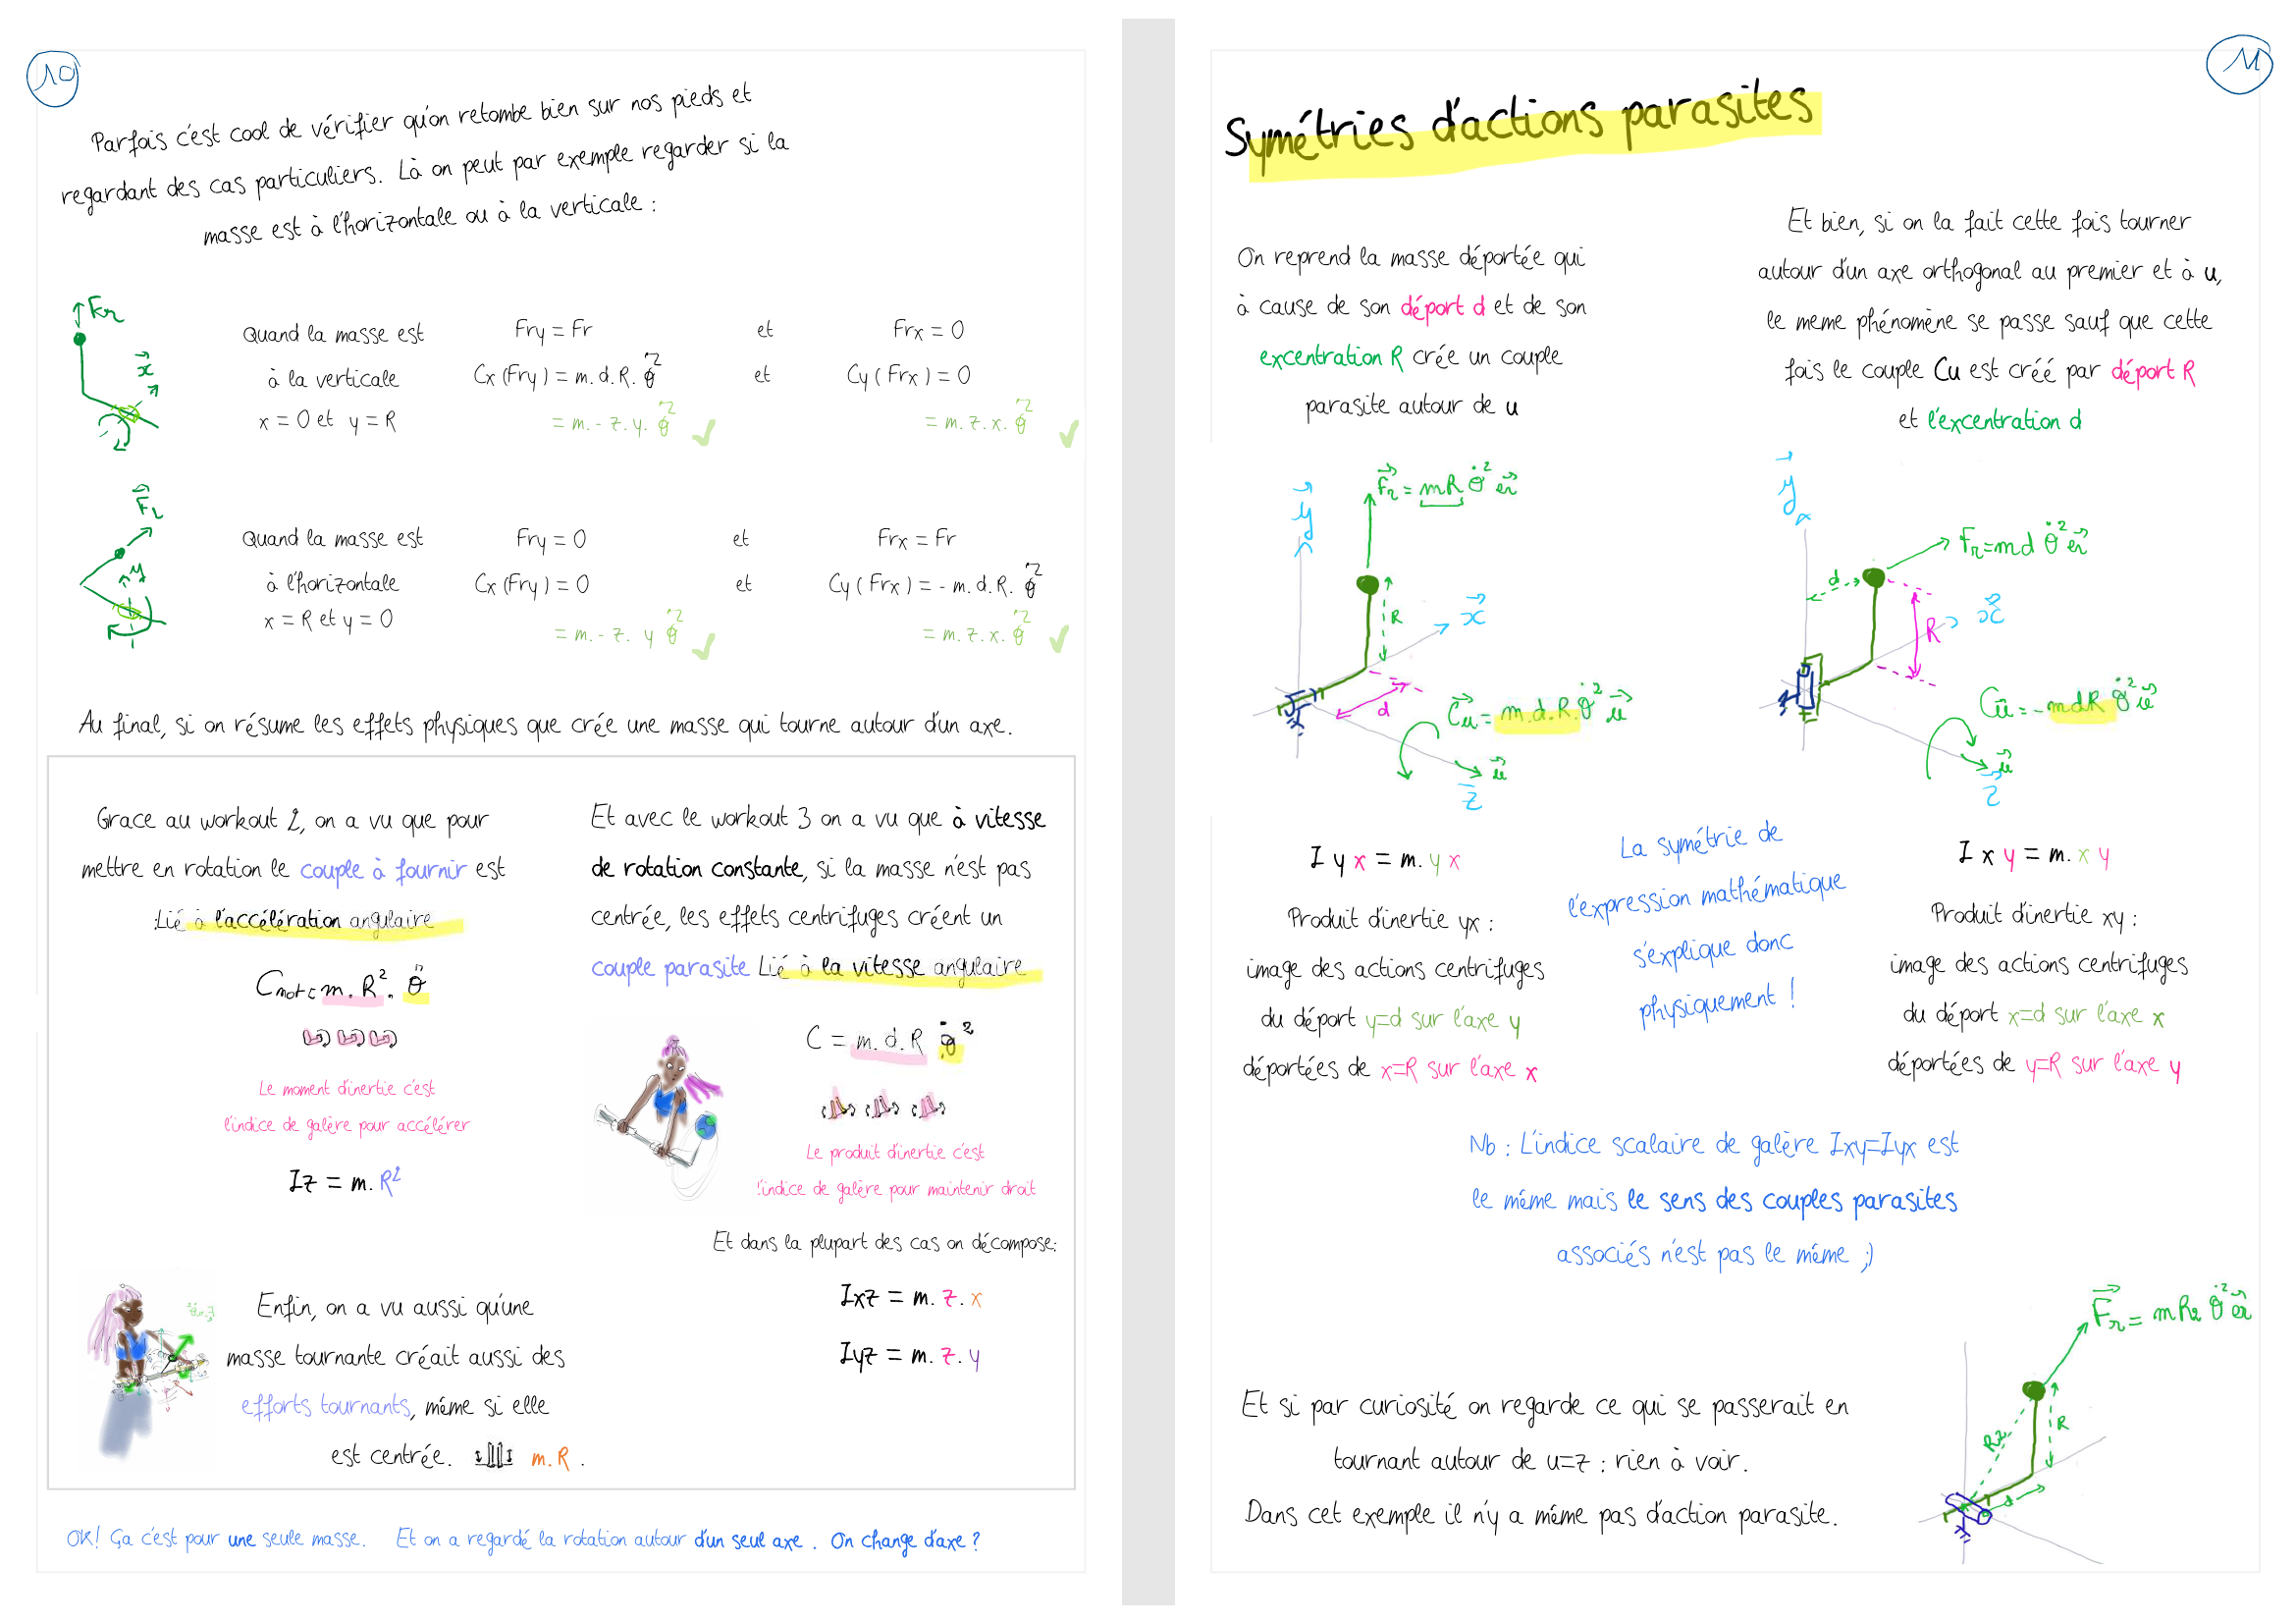 10
Parfois c'est cool de vérifier qu'on retombe bien sur nos pieds et
regardant des cas particuliers. Là on peut par exemple regarder si la
masse est à l'horizontale ou à la verticale :
Fr
x
Quand la masse est
à la verticale
x = 0 et y = R
Fry = Fr et Frx = 0
Cx (Fry) = m. d. R. θ̇² et Cy (Frx) = 0
= m. - z. y. θ̇² ✓ = m. z. x. θ̇² ✓
Fr
y
Quand la masse est
à l'horizontale
x = R et y = 0
Fry = 0 et Frx = Fr
Cx (Fry) = 0 et Cy (Frx) = - m. d. R. θ̇²
= m. - z. y θ̇² ✓ = m. z. x. θ̇² ✓
Au final, si on résume les effets physiques que crée une masse qui tourne autour d'un axe.
Grace au workout 2, on a vu que pour
mettre en rotation le couple à fournir est
Lié à l'accélération angulaire
Cmot = m. R². θ̈
Le moment d'inertie c'est
l'indice de galère pour accélérer
Iz = m. R²
Et avec le workout 3 on a vu que à vitesse
de rotation constante, si la masse n'est pas
centrée, les effets centrifuges créent un
couple parasite Lié à la vitesse angulaire
C = m. d. R θ̇²
Le produit d'inertie c'est
l'indice de galère pour maintenir droit
Et dans la plupart des cas on décompose:
Ixz = m. z. x
Iyz = m. z. y
Enfin, on a vu aussi qu'une
masse tournante créait aussi des
efforts tournants, même si elle
est centrée. m. R .
OK! Ça c'est pour une seule masse. Et on a regardé la rotation autour d'un seul axe . On change d'axe ?
11
Symétries d'actions parasites
On reprend la masse déportée qui
à cause de son déport d et de son
excentration R crée un couple
parasite autour de u
Et bien, si on la fait cette fois tourner
autour d'un axe orthogonal au premier et à u,
le meme phénomène se passe sauf que cette
fois le couple Cu est créé par déport R
et l'excentration d
y
Fr = mR θ̇² er
R
x
d
Cu = m.d.R. θ̇² u
u
z
y
Fr = md θ̇² er
d
R
x
Cu = - mdR θ̇² u
u
z
I y x = m. y x
Produit d'inertie yx :
image des actions centrifuges
du déport y=d sur l'axe y
déportées de x=R sur l'axe x
La symétrie de
l'expression mathématique
s'explique donc
physiquement !
I x y = m. x y
Produit d'inertie xy :
image des actions centrifuges
du déport x=d sur l'axe x
déportées de y=R sur l'axe y
Nb : L'indice scalaire de galère Ixy=Iyx est
le même mais le sens des couples parasites
associés n'est pas le même ;)
Et si par curiosité on regarde ce qui se passerait en
tournant autour de u=z : rien à voir.
Dans cet exemple il n'y a même pas d'action parasite.
Fr = mR2 θ̇² er
R2
R
d